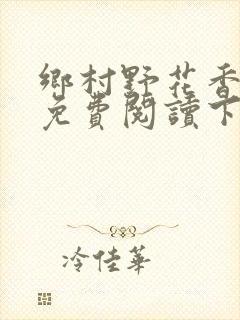 鄉村野花香
免費閱讀下
冷佳華